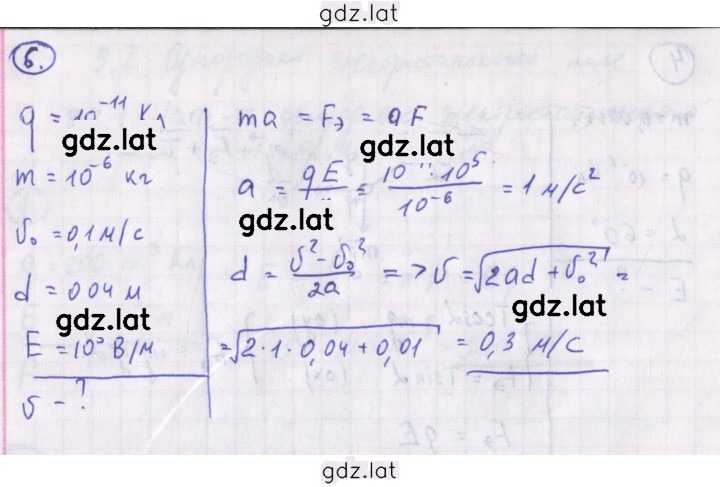 gdz.lat
6.
q = 10⁻¹¹ Кл
gdz.lat
m = 10⁻⁶ кг
υ₀ = 0,1 м/с
d = 0,04 м
gdz.lat
E = 10⁵ В/м
υ - ?
ma = Fэ = qE
gdz.lat
a = qE/m = 10⁻¹¹·10⁵/10⁻⁶ = 1 м/с²
gdz.lat
d = (υ² - υ₀²)/2a => υ = √(2ad + υ₀²) =
= √(2·1·0,04 + 0,01) = 0,3 м/с
gdz.lat
gdz.lat